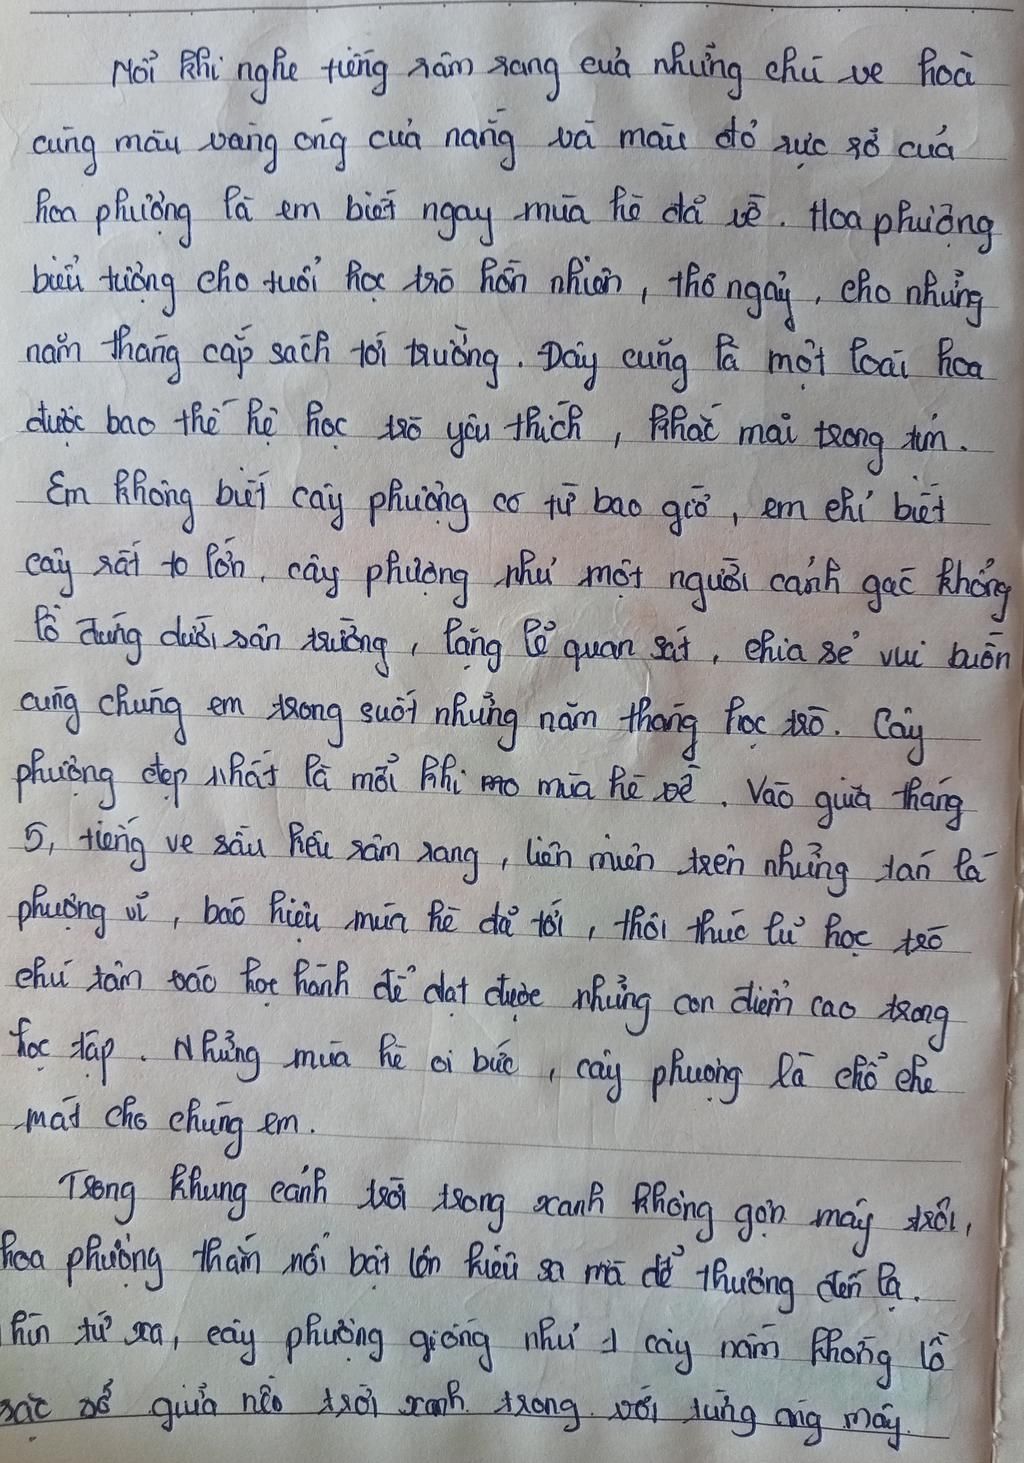 Mỗi khi nghe tiếng râm rang của những chú ve hoà
cùng màu vàng óng của nắng và màu đỏ rực rỡ của
hoa phượng là em biết ngay mùa hè đã về. Hoa phượng
biểu tượng cho tuổi học trò hồn nhiên, thơ ngây, cho những
năm tháng cắp sách tới trường. Đây cũng là một loài hoa
được bao thế hệ học trò yêu thích, khắc mãi trong tim.
Em không biết cây phượng có từ bao giờ, em chỉ biết
cây rất to lớn, cây phượng như một người cảnh gác khổng
lồ đứng dưới sân trường, lặng lẽ quan sát, chia sẻ vui buồn
cùng chúng em trong suốt những năm tháng học trò. Cây
phượng đẹp nhất là mỗi khi mùa hè về. Vào giữa tháng
5, tiếng ve sầu kêu râm rang, liên miên trên những tán lá
phượng vĩ, báo hiệu mùa hè đã tới, thôi thúc lũ học trò
chú tâm vào học hành để đạt được những con điểm cao trong
học tập. Những mùa hè oi bức, cây phượng là chỗ che
mát cho chúng em.
Trong khung cảnh trời trong xanh không gợn mây trôi,
hoa phượng thắm nổi bật lên kiêu sa mà dễ thương đến lạ.
hìn từ xa, cây phượng giống như 1 cây nấm khổng lồ
sặc sỡ giữa nền trời xanh trong với từng áng mây.